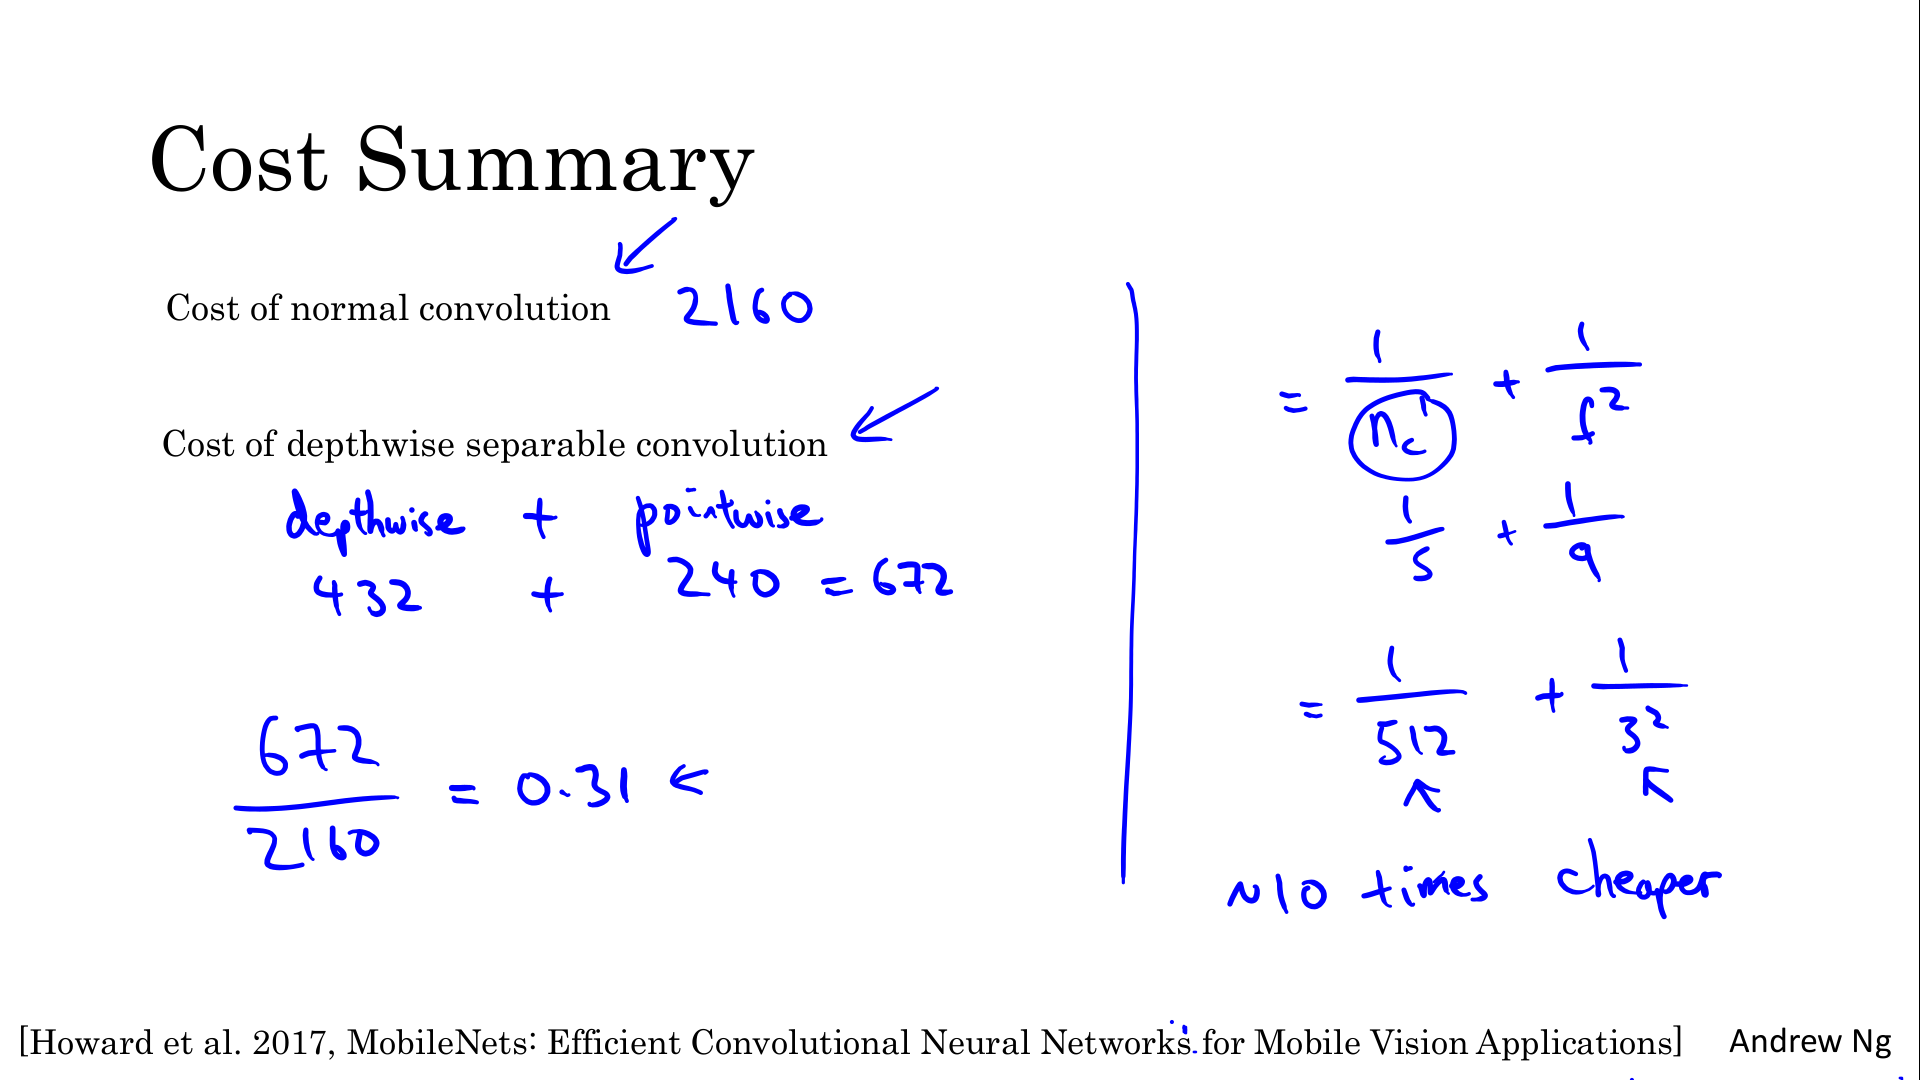 Cost Summary
Cost of normal convolution 2160
Cost of depthwise separable convolution
depthwise + pointwise
432 + 240 = 672
672
2160
= 0.31 ←
= 1/n_c' + 1/f²
1/5 + 1/9
= 1/512 + 1/3²
~10 times cheaper
[Howard et al. 2017, MobileNets: Efficient Convolutional Neural Networks for Mobile Vision Applications]
Andrew Ng